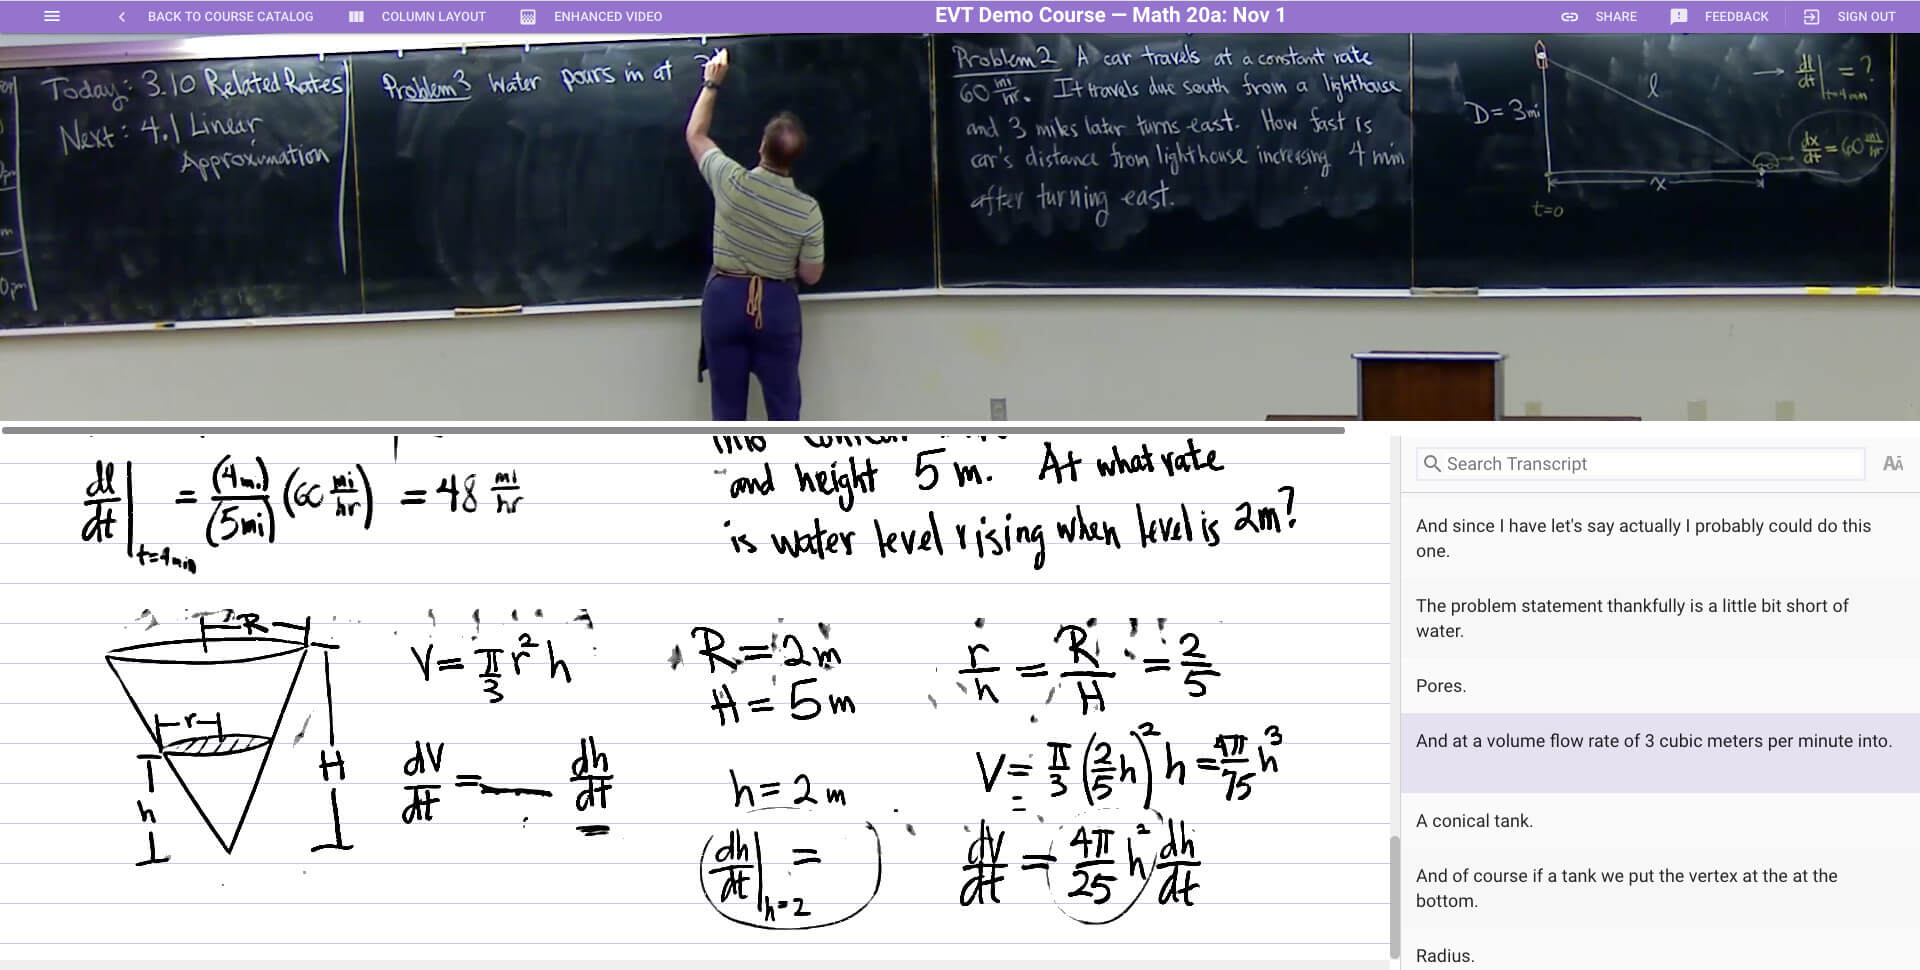 BACK TO COURSE CATALOG
COLUMN LAYOUT
ENHANCED VIDEO
EVT Demo Course — Math 20a: Nov 1
SHARE
FEEDBACK
SIGN OUT
Today: 3.10 Related Rates
Next: 4.1 Linear
Approximation
Problem 3 Water pours in at
Problem 2 A car travels at a constant rate
60 mi/hr. It travels due south from a lighthouse
and 3 miles later turns east. How fast is
car's distance from lighthouse increasing 4 min
after turning east.
D = 3mi
l
x
t=0
→ dl/dt |t=4min = ?
dx/dt = 60 mi/hr
and height 5 m. At what rate
is water level rising when level is 2m?
dl/dt |t=4min = (4mi)/(5mi) (60 mi/hr) = 48 mi/hr
R
r
h
H
V = π/3 r² h
dV/dt = ___ dh/dt
R = 2m
H = 5m
h = 2m
dh/dt |h=2 =
r/h = R/H = 2/5
V = π/3 (2/5 h)² h = 4π/75 h³
dV/dt = 4π/25 h² dh/dt
Search Transcript
And since I have let's say actually I probably could do this
one.
The problem statement thankfully is a little bit short of
water.
Pores.
And at a volume flow rate of 3 cubic meters per minute into.
A conical tank.
And of course if a tank we put the vertex at the at the
bottom.
Radius.